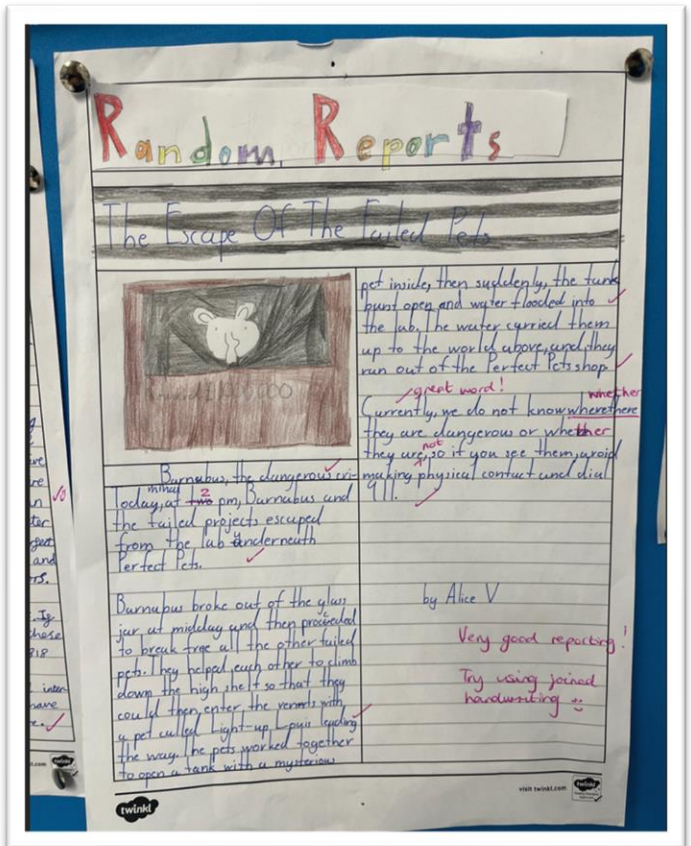 Random Reports
The Escape Of The Failed Pets
Reward £1000000
Barnabus, the dangerous cri-
minal
Today, at two 2 pm, Barnabus and
the failed projects escaped
from the lab underneath
Perfect Pets.
Barnabus broke out of the glass
jar at midday and then proceeded
to break free all the other failed
pets. They helped each other to climb
down the high shelf so that they
could then enter the vennts with
a pet called Light-up Louis leading
the way. The pets worked together
to open a tank with a mysterious
pet inside, then suddenly, the tank
burst open and water flooded into
the lab. The water carried them
up to the world above, and they
run out of the Perfect Pets shop
great word!
whether
Currently, we do not know wherethere
they are dangerous or whether
not
they are, so if you see them, avoid
making physical contact and dial
911.
by Alice V
Very good reporting!
Try using joined
handwriting
twinkl
visit twinkl.com
twinkl
ve
are
n
ter
and
rs.
Is
these
818
inter
have
e.
.com
twinkl